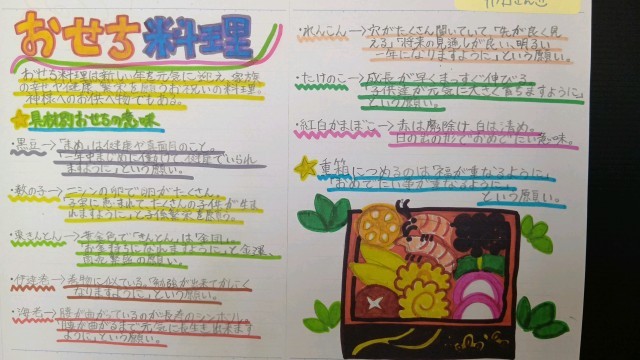 おせち料理
おせち料理は新しい年を元気に迎え、家族
の幸せや健康、繁栄を願うお祝いの料理。
神様へのお供え物でもある。
具材別おせちの意味
・黒豆→「まめ」は健康や真面目のこと。
一年中まじめに働けて健康でいられ
ますように」という願い。
・数の子→ニシンの卵で卵がたくさん。
「子宝に恵まれてたくさんの子供が生ま
れますように」と子孫繁栄の願い。
・栗きんとん→黄金色で「きんとん」は「金団」。
お金持ちになれますように」と金運、
商売繁盛の願い。
・伊達巻→巻物に似ている。「勉強が出来てかしこく
なりますように」という願い。
・海老→腰が曲がっているのが長寿のシンボル。
「腰が曲がるまで元気に長生き出来ます
ように」という願い。
・れんこん→穴がたくさん開いていて「先が良く見
える」「将来の見通しが良い、明るい
一年になりますように」という願い。
・たけのこ→成長が早くまっすぐ伸びる。
「子供達が元気に大きく育ちますように」
という願い。
・紅白かまぼこ→赤は魔除け、白は清め。
日の出の形で"おめでたい"意味。
重箱につめるのは「福が重なるように」
「おめでたい事が重なるように」
という願い。